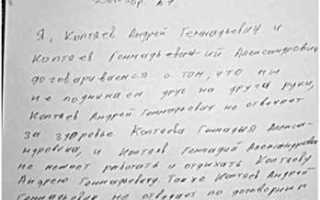 Договор №7
Я, Коптяев Андрей Геннадьевич и
Коптяев Геннадьевич-ий Александрович
договариваемся о том, что мы
не поднимаем друг на друга руки,
Коптяев Андрей Геннадьевич не отвечает
за здоровье Коптяева Геннадия Алексан-
дровича, и Коптяев Геннадий Александрович
не мешает работать и отдыхать Коптяеву
Андрею Геннадьевичу. Также Коптяев Андрей
Геннадьевич не отвечает по договорным